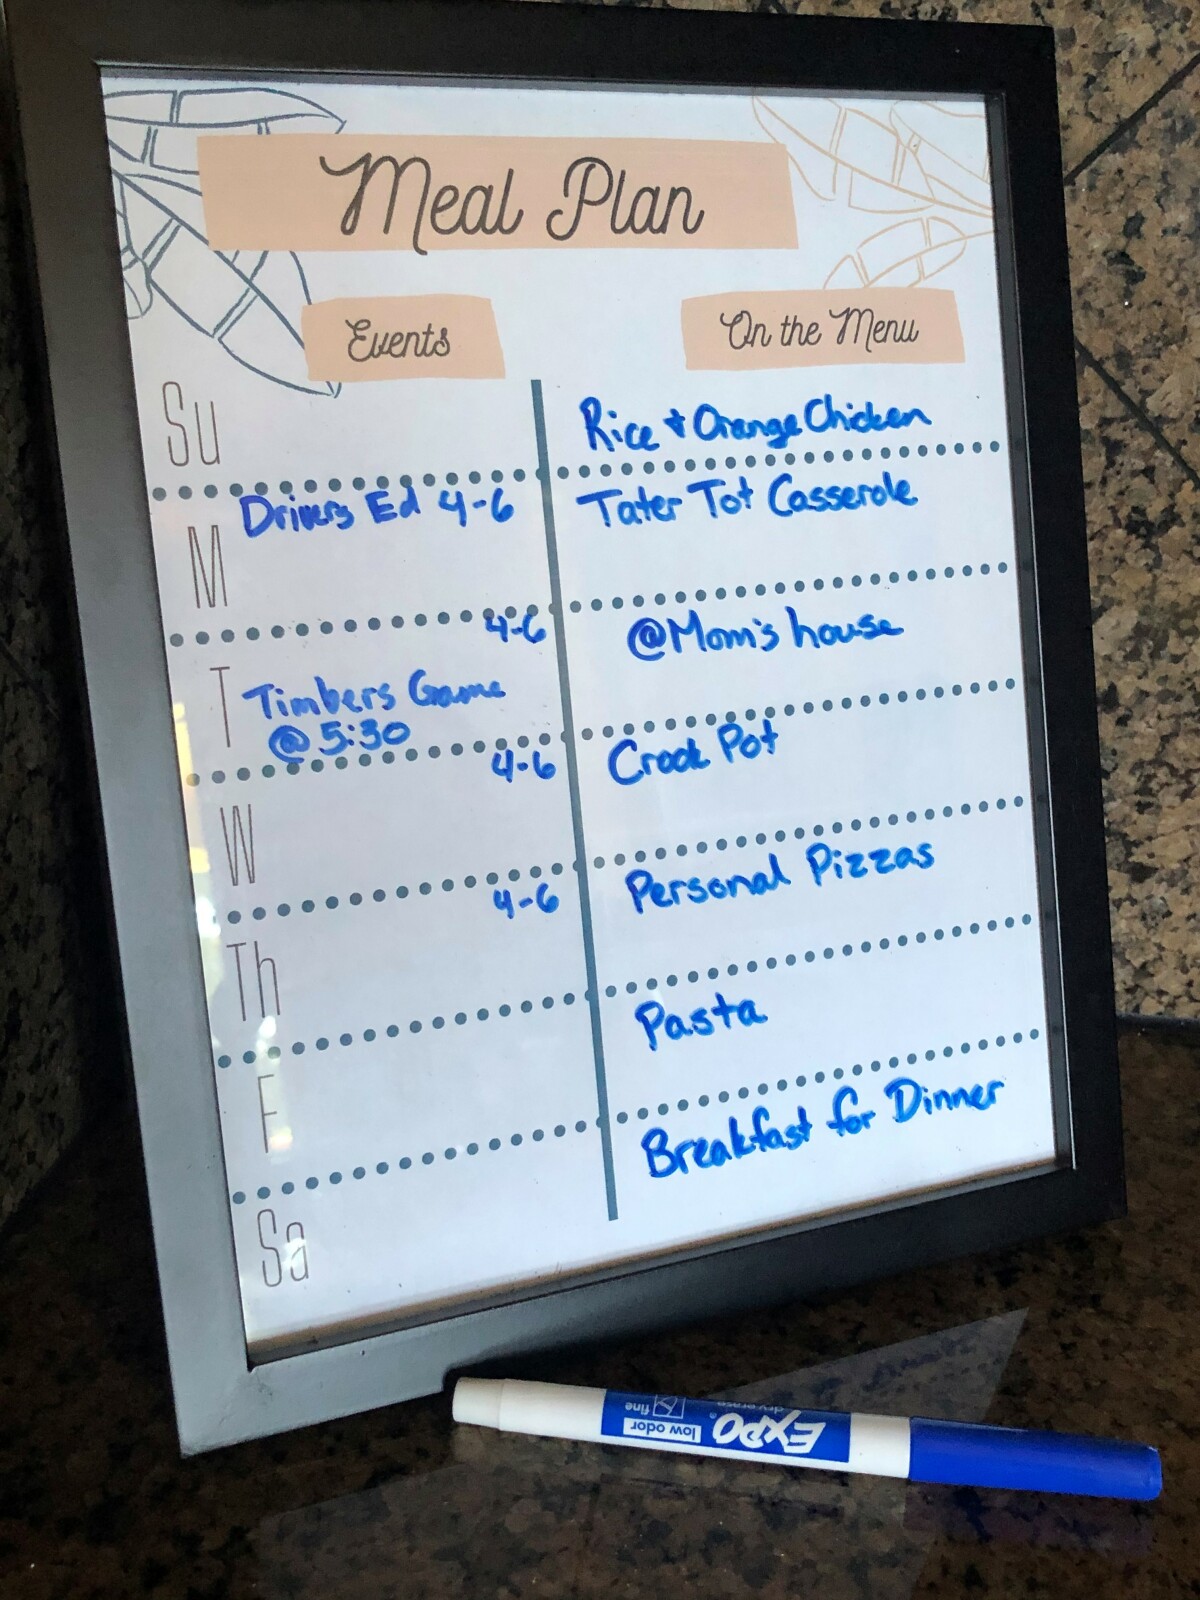 Meal Plan
Events
On the Menu
Su
Rice + Orange Chicken
M
Drivers Ed 4-6
Tater Tot Casserole
T
4-6
Timbers Game
@ 5:30
@Mom's house
W
4-6
Crock Pot
Th
4-6
Personal Pizzas
F
Pasta
Sa
Breakfast for Dinner
EXPO®
dry erase
low odor
fine